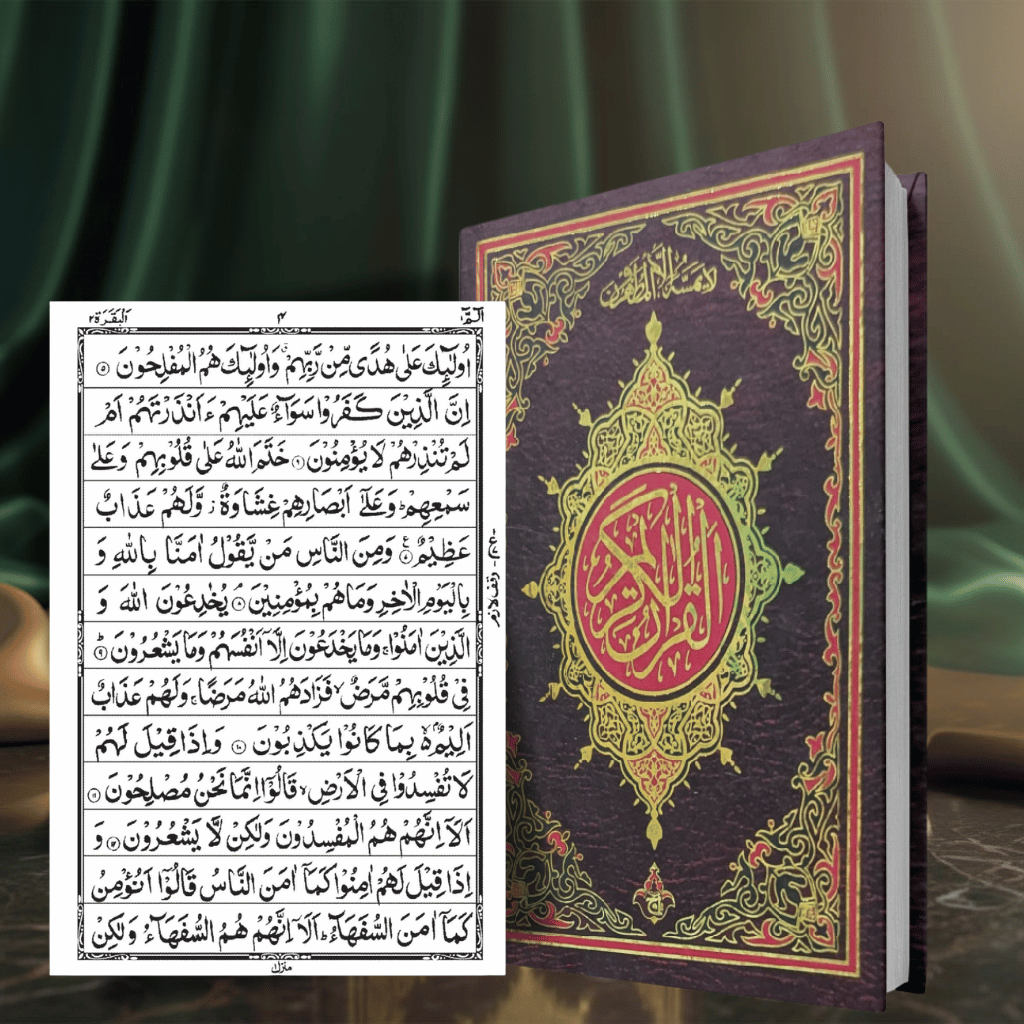 الٓمّٓ ١ ۴ اَلْبَقَرَة ٢
اُولٰٓئِكَ عَلٰى هُدًى مِّنْ رَّبِّهِمْ ۙ وَاُولٰٓئِكَ هُمُ الْمُفْلِحُوْنَ ۵
اِنَّ الَّذِيْنَ كَفَرُوْا سَوَآءٌ عَلَيْهِمْ ءَاَنْذَرْتَهُمْ اَمْ
لَمْ تُنْذِرْهُمْ لَا يُؤْمِنُوْنَ ۶ خَتَمَ اللّٰهُ عَلٰى قُلُوْبِهِمْ وَعَلٰى
سَمْعِهِمْ ؕ وَعَلٰٓى اَبْصَارِهِمْ غِشَاوَةٌ ؗ وَّلَهُمْ عَذَابٌ
عَظِيْمٌ ۷ وَمِنَ النَّاسِ مَنْ يَّقُوْلُ اٰمَنَّا بِاللّٰهِ وَ
بِالْيَوْمِ الْاٰخِرِ وَمَا هُمْ بِمُؤْمِنِيْنَ ۸ يُخٰدِعُوْنَ اللّٰهَ وَ
الَّذِيْنَ اٰمَنُوْا ۚ وَمَا يَخْدَعُوْنَ اِلَّآ اَنْفُسَهُمْ وَمَا يَشْعُرُوْنَ ؕ ۹
فِيْ قُلُوْبِهِمْ مَّرَضٌ ۙ فَزَادَهُمُ اللّٰهُ مَرَضًا ۚ وَلَهُمْ عَذَابٌ
اَلِيْمٌۢ ۙ بِمَا كَانُوْا يَكْذِبُوْنَ ۱۰ وَاِذَا قِيْلَ لَهُمْ
لَا تُفْسِدُوْا فِي الْاَرْضِ ۙ قَالُوْٓا اِنَّمَا نَحْنُ مُصْلِحُوْنَ ۱۱
اَلَآ اِنَّهُمْ هُمُ الْمُفْسِدُوْنَ وَلٰكِنْ لَّا يَشْعُرُوْنَ ۱۲ وَ
اِذَا قِيْلَ لَهُمْ اٰمِنُوْا كَمَآ اٰمَنَ النَّاسُ قَالُوْٓا اَنُؤْمِنُ
كَمَآ اٰمَنَ السُّفَهَآءُ ؕ اَلَآ اِنَّهُمْ هُمُ السُّفَهَآءُ وَلٰكِنْ
منزل ١
وقف لازم
لا يمسه الا المطهرون
القرآن الكريم